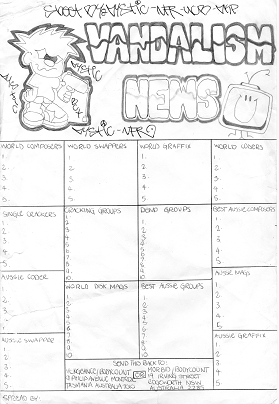 VANDALISM
NEWS
WORLD COMPOSERS WORLD SWAPPERS WORLD GRAFFIX WORLD CODERS
1. 1. 1.
2. 2. 2. 2.
3. 3. 3. 3.
4. 4. 4. 4.
5. 5. 5. 5.
SINGLE CRACKERS CRACKING GROUPS DEMO GROUPS BEST AUSSIE COMPOSERS
1 1 1 1.
2 2 2 2.
3 3 3 3.
4 4 4 4.
5 5 5 5.
6 6
7 7
8 8
9 9
10 10
AUSSIE CODER WORLD DISK MAGS BEST AUSSIE GROUPS AUSSIE MAGS
1 1 1 1.
2 2 2 2.
3 3 3 3.
4 4 4 4.
5 5 5 5.
6 6
7 7
8 8
9 9
10 10
AUSSIE SWAPPER AUSSIE GRAFFIX
1. 1.
2. 2.
3. 3.
4. 4.
5. 5.
SEND THIS BACK TO:
VENGEANCE/BODYCOUNT OR MORBID/BODYCOUNT
PHILIP AVENUE MONTROSE 19 IRVING STREET
TASMANIA AUSTRALIA EDGEWORTH NSW
AUSTRALIA 2285
SPREAD BY: